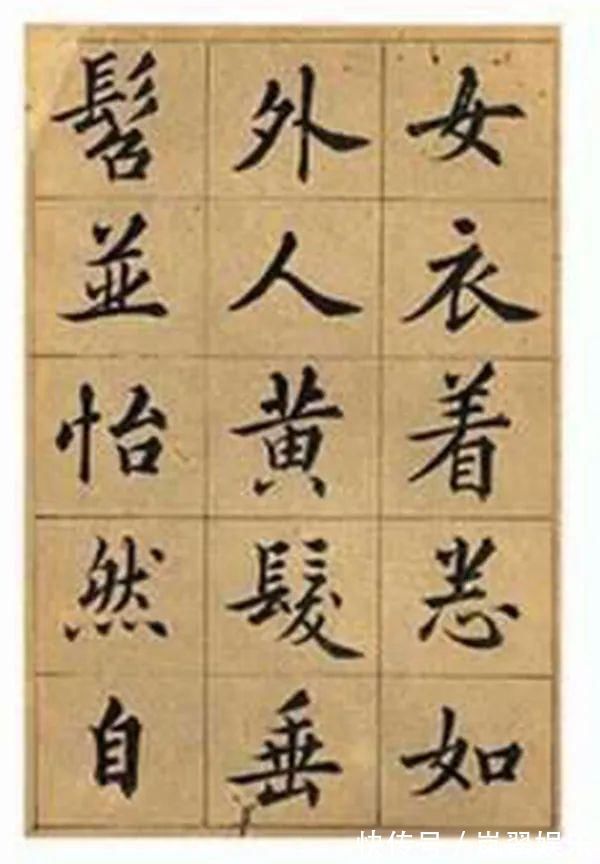 女衣着悉如
外人黄髮垂
髫並怡然自
快传号/